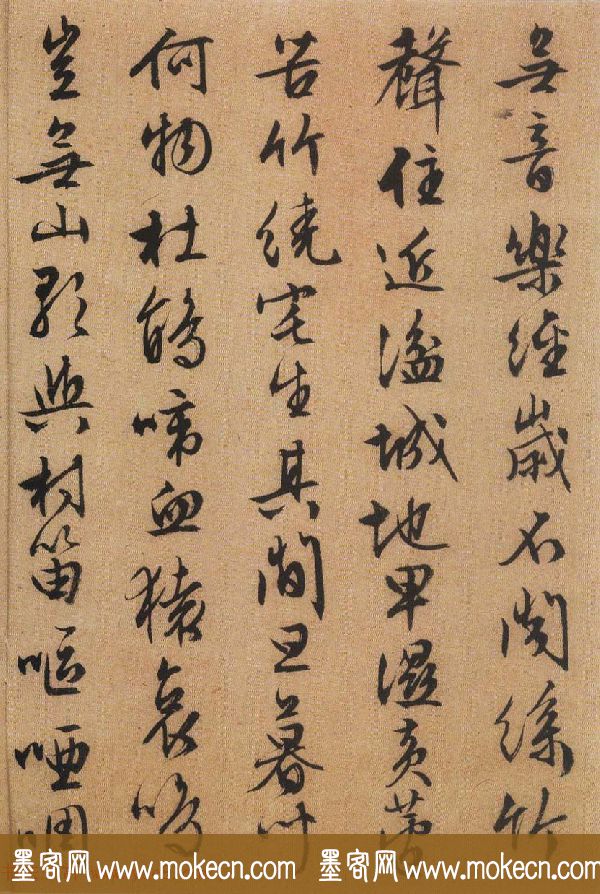 無音樂經歲不聞絲竹
聲住近湓城地卑濕黃蘆
苦竹繞宅生其間旦暮
何物杜鵑啼血猿哀鳴
豈無山歌與村笛嘔啞
墨客网 www.mokecn.com 墨客网 www.mokecn.com